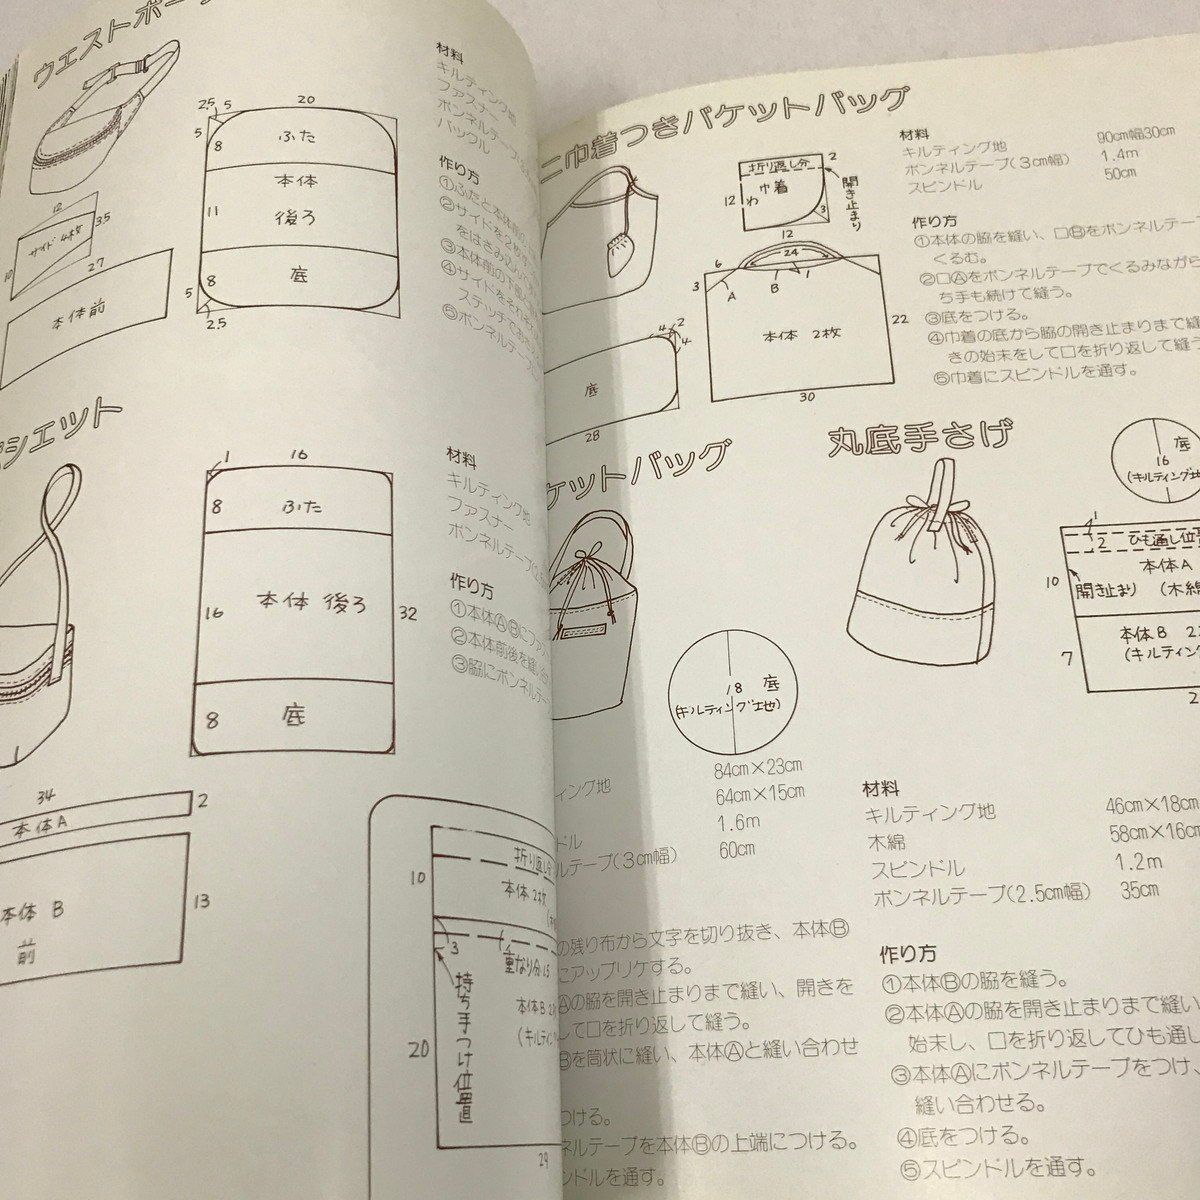 ウエストポー
2.5
5
20
5
8
ふた
本体
11
後ろ
8
底
5
2.5
12
3.5
サイド 4枚
10
27
本体前
材料
キルティング地
ファスナー
ボンネルテープ(
バックル
作り方
①ふたと本体
②サイドを2枚
をはさみ
③本体前の下
④サイドをそれ
ステッチで
⑤ボンネルテープ
シエット
1
16
8
ふた
16
本体 後ろ
32
8
底
34
2
本体A
本体 B
前
13
材料
キルティング地
ファスナー
ボンネルテープ
作り方
①本体ⒶⒷにファ
②本体前後を縫い
③脇にボンネルテー
10
折り返し分
本体 2枚
3
重なり分1.5
持ち手つけ位置
本体B 2
(キルティン
20
29
ニ巾着つきバケットバッグ
折り返し分
2
巾着
12
わ
3
開き止まり
12
24
6
3
A
B
1
本体 2枚
22
30
4
2
4
底
28
材料
キルティング地 90cm幅30cm
ボンネルテープ(3cm幅) 1.4m
スピンドル 50cm
作り方
①本体の脇を縫い、口Ⓑをボンネルテー
くるむ。
②口Ⓐをボンネルテープでくるみながら
ち手も続けて縫う。
③底をつける。
④巾着の底から脇の開き止まりまで縫
きの始末をして口を折り返して縫う
⑤巾着にスピンドルを通す。
ケットバッグ
18 底
(キルティング地)
84cm×23cm
ィング地 64cm×15cm
1.6m
ドル 60cm
ルテープ(3cm幅)
の残り布から文字を切り抜き、本体Ⓑ
にアップリケする。
Ⓐの脇を開き止まりまで縫い、開きを
して口を折り返して縫う。
Ⓑを筒状に縫い、本体Ⓐと縫い合わせ
つける。
ネルテープを本体Ⓑの上端につける。
ンドルを通す。
丸底手さげ
底
16
(キルティング地
1
2
ひも通し位置
本体A
10
開き止まり
(木綿
本体 B 2
(キルティング
7
2
材料
キルティング地 46cm×18cm
木綿 58cm×16cm
スピンドル 1.2m
ボンネルテープ(2.5cm幅) 35cm
作り方
①本体Ⓑの脇を縫う。
②本体Ⓐの脇を開き止まりまで縫い
始末し、口を折り返してひも通し
③本体Ⓐにボンネルテープをつけ、
縫い合わせる。
④底をつける。
⑤スピンドルを通す。